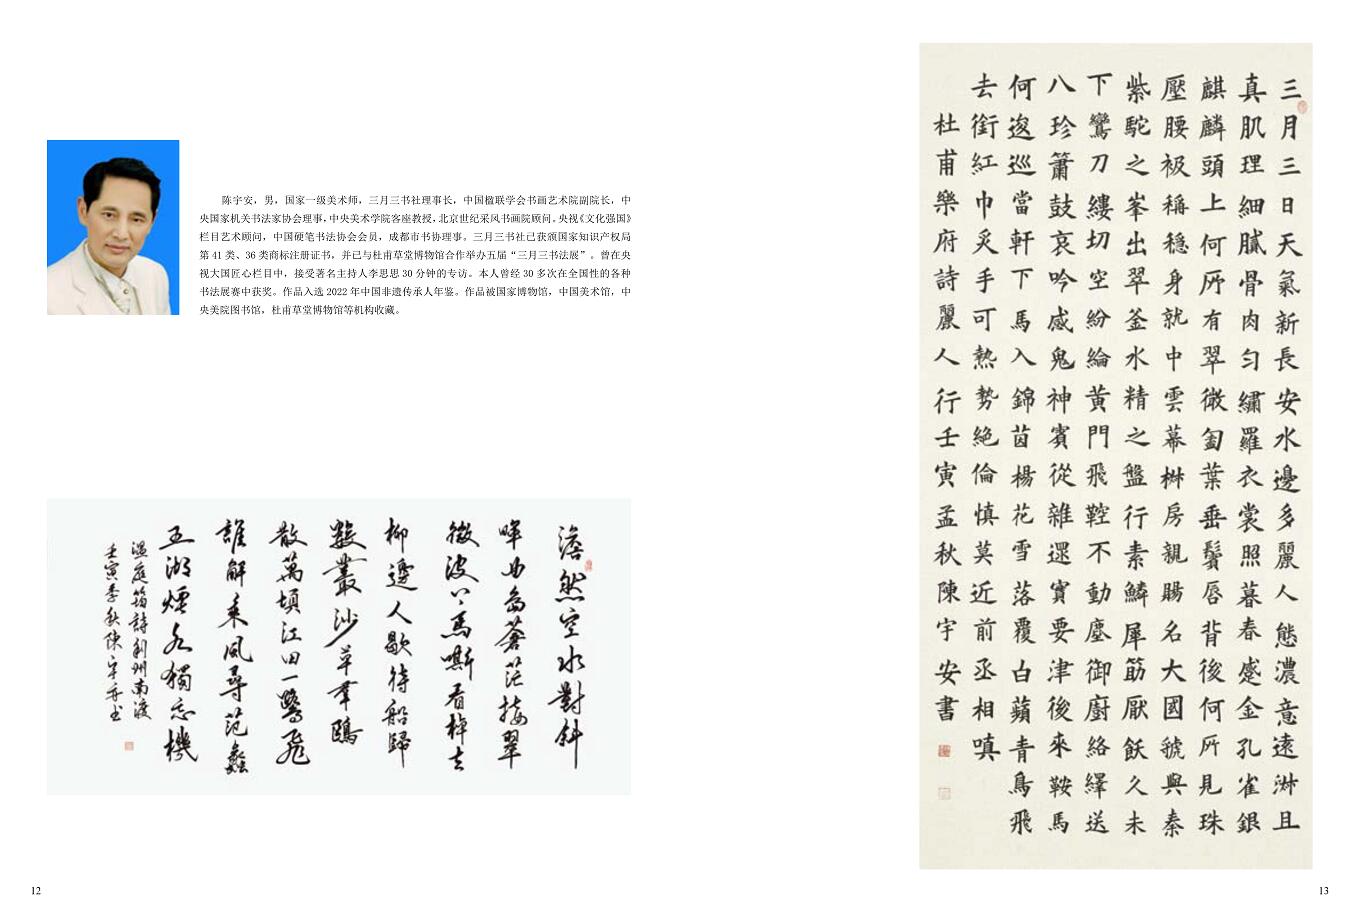 陈宇安，男，国家一级美术师，三月三书社理事长，中国楹联学会书画艺术院副院长，中
央国家机关书法家协会理事，中央美术学院客座教授，北京世纪采风书画院顾问。央视《文化强国》
栏目艺术顾问，中国硬笔书法协会会员，成都市书协理事。三月三书社已获颁国家知识产权局
第 41 类、36 类商标注册证书，并已与杜甫草堂博物馆合作举办五届“三月三书法展”。曾在央
视大国匠心栏目中，接受著名主持人李思思 30 分钟的专访。本人曾经 30 多次在全国性的各种
书法展赛中获奖。作品入选 2022 年中国非遗传承人年鉴。作品被国家博物馆，中国美术馆，中
央美院图书馆，杜甫草堂博物馆等机构收藏。
澹然空水對斜
暉曲島蒼茫接翠
微波上馬嘶看棹去
柳邊人歇待船歸
數叢沙草羣鷗
散萬頃江田一鷺飛
誰解乘風尋范蠡
五湖煙水獨忘機
溫庭筠詩利州南渡
壬寅季秋陳宇安書
12
三月三日天氣新長安水邊多麗人態濃意遠淑且
真肌理細膩骨肉勻繡羅衣裳照暮春蹙金孔雀銀
麒麟頭上何所有翠微㔩葉垂鬢唇背後何所見珠
壓腰衱稱穩身就中雲幕椒房親賜名大國虢與秦
紫駝之峯出翠釜水精之盤行素鱗犀筯厭飫久未
下鸞刀縷切空紛綸黃門飛鞚不動塵御廚絡繹送
八珍簫鼓哀吟感鬼神賓從雜遝實要津後來鞍馬
何逡巡當軒下馬入錦茵楊花雪落覆白蘋青鳥飛
去銜紅巾炙手可熱勢絕倫慎莫近前丞相嗔
杜甫樂府詩麗人行壬寅孟秋陳宇安書
13